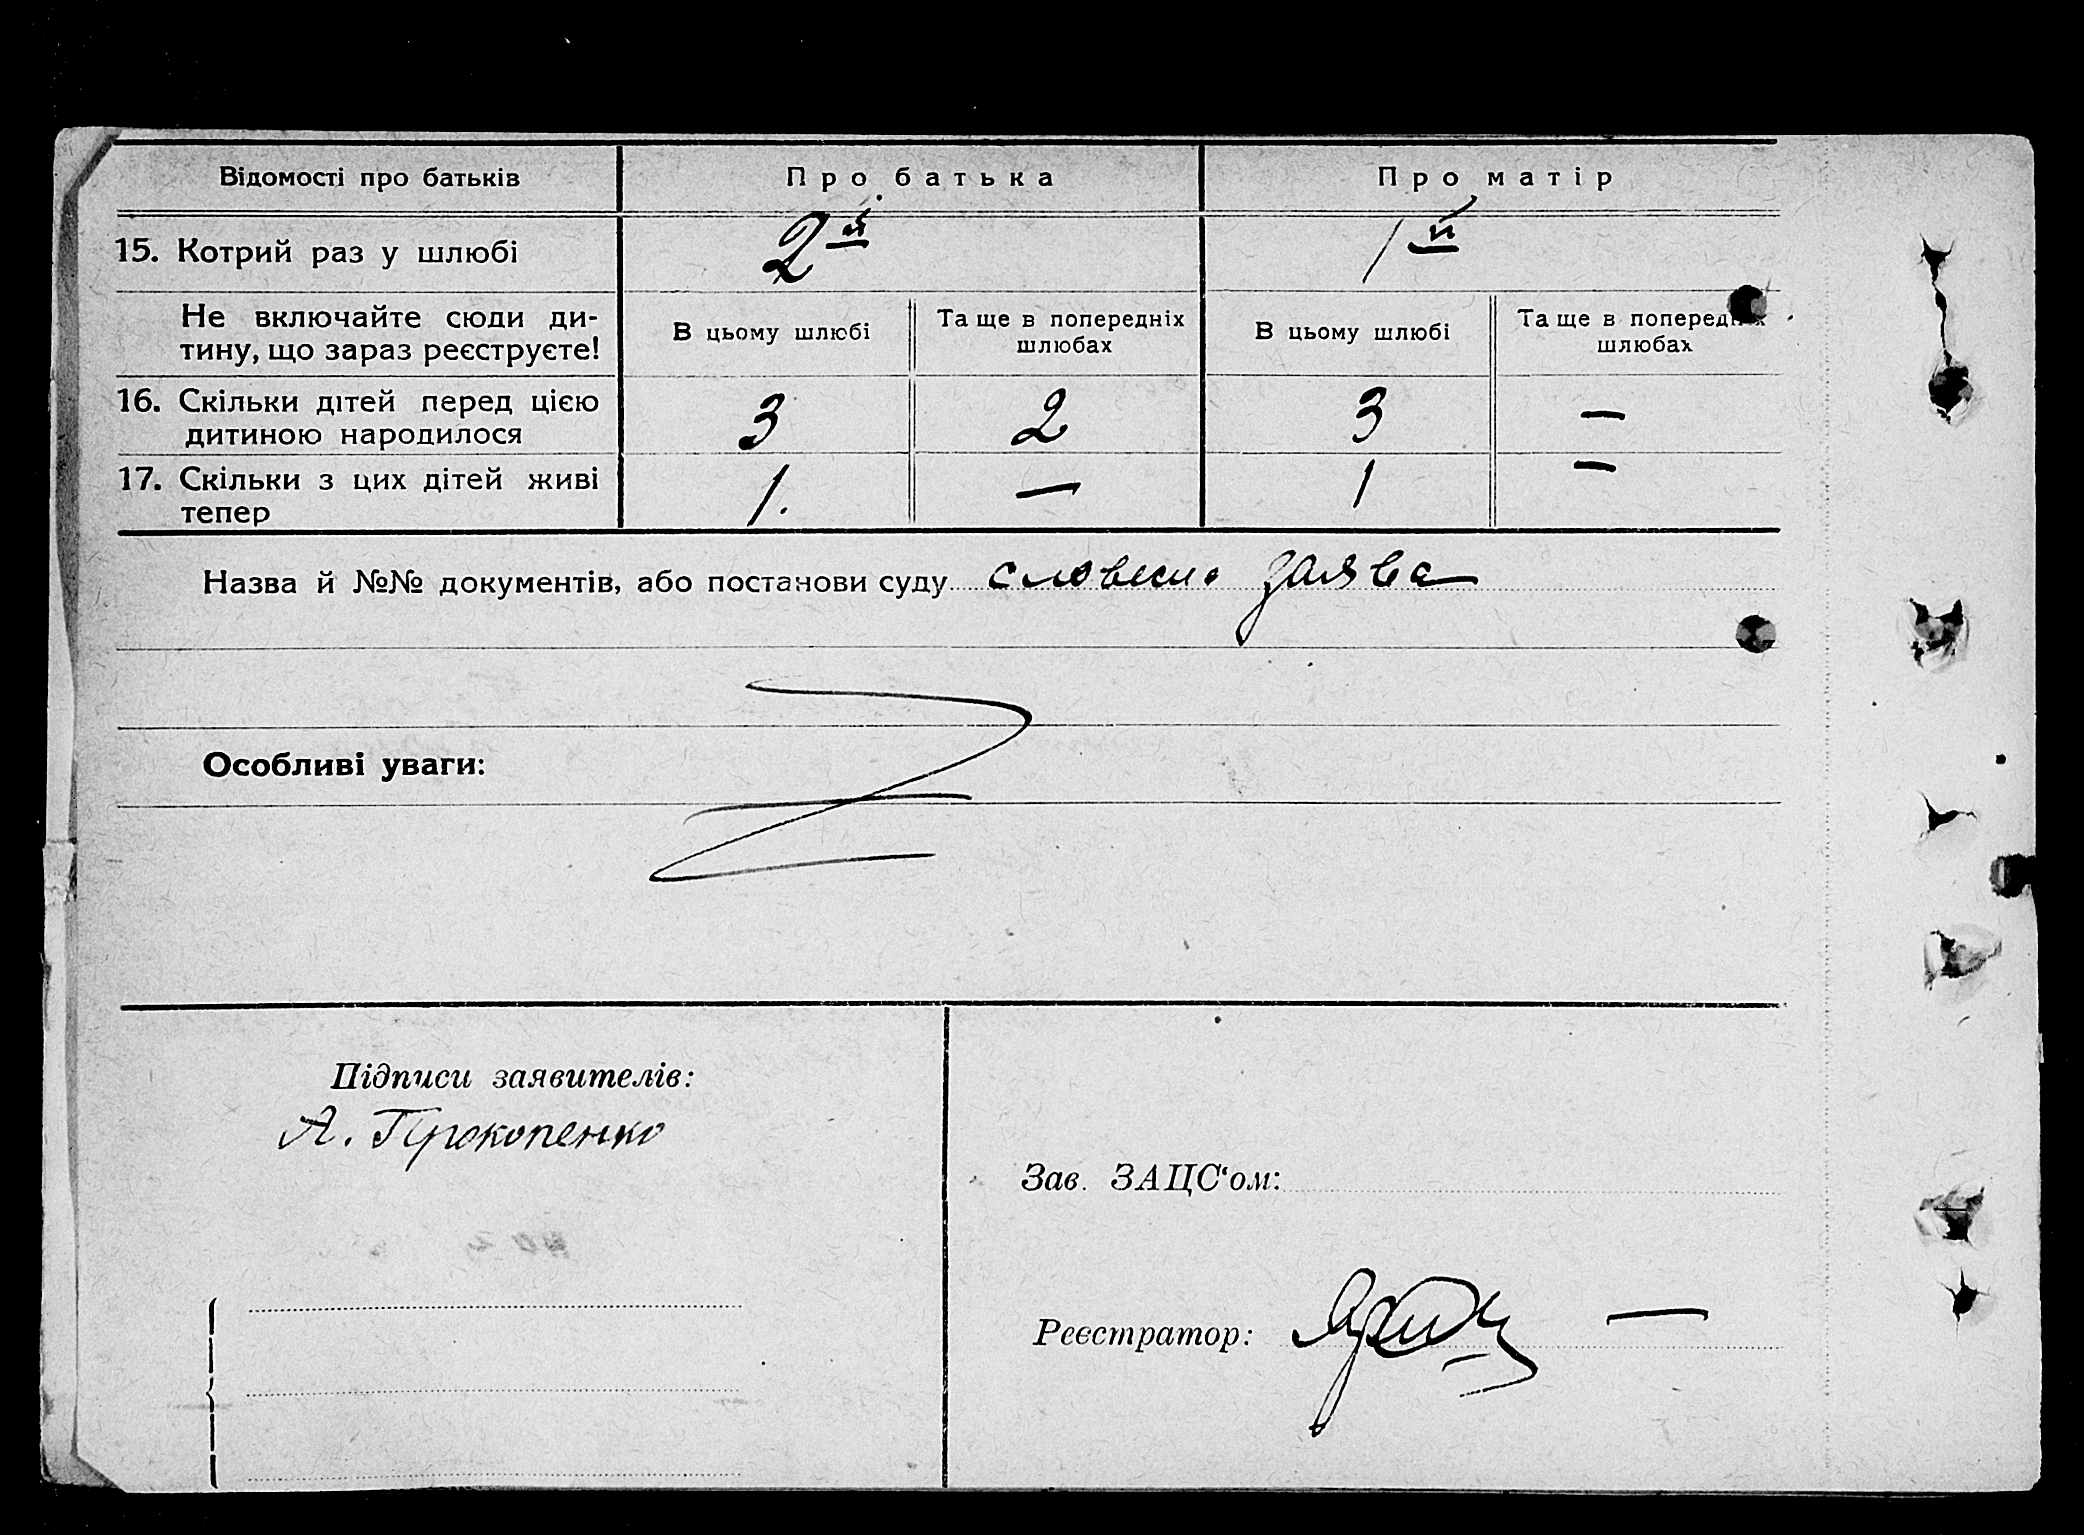 Відомості про батьків Про батька Про матір
15. Котрий раз у шлюбі 2й 1й
Не включайте сюди ди-
тину, що зараз реєструєте!
В цьому шлюбі
Та ще в попередніх
шлюбах
В цьому шлюбі
Та ще в попередніх
шлюбах
16. Скільки дітей перед цією
дитиною народилося
3 2 3 —
17. Скільки з цих дітей живі
тепер
1. — 1 —
Назва й №№ документів, або постанови суду словесно заява
Особливі уваги:
Підписи заявителів:
А. Прокопенко
Зав. ЗАЦС‘ом:
Реєстратор: —